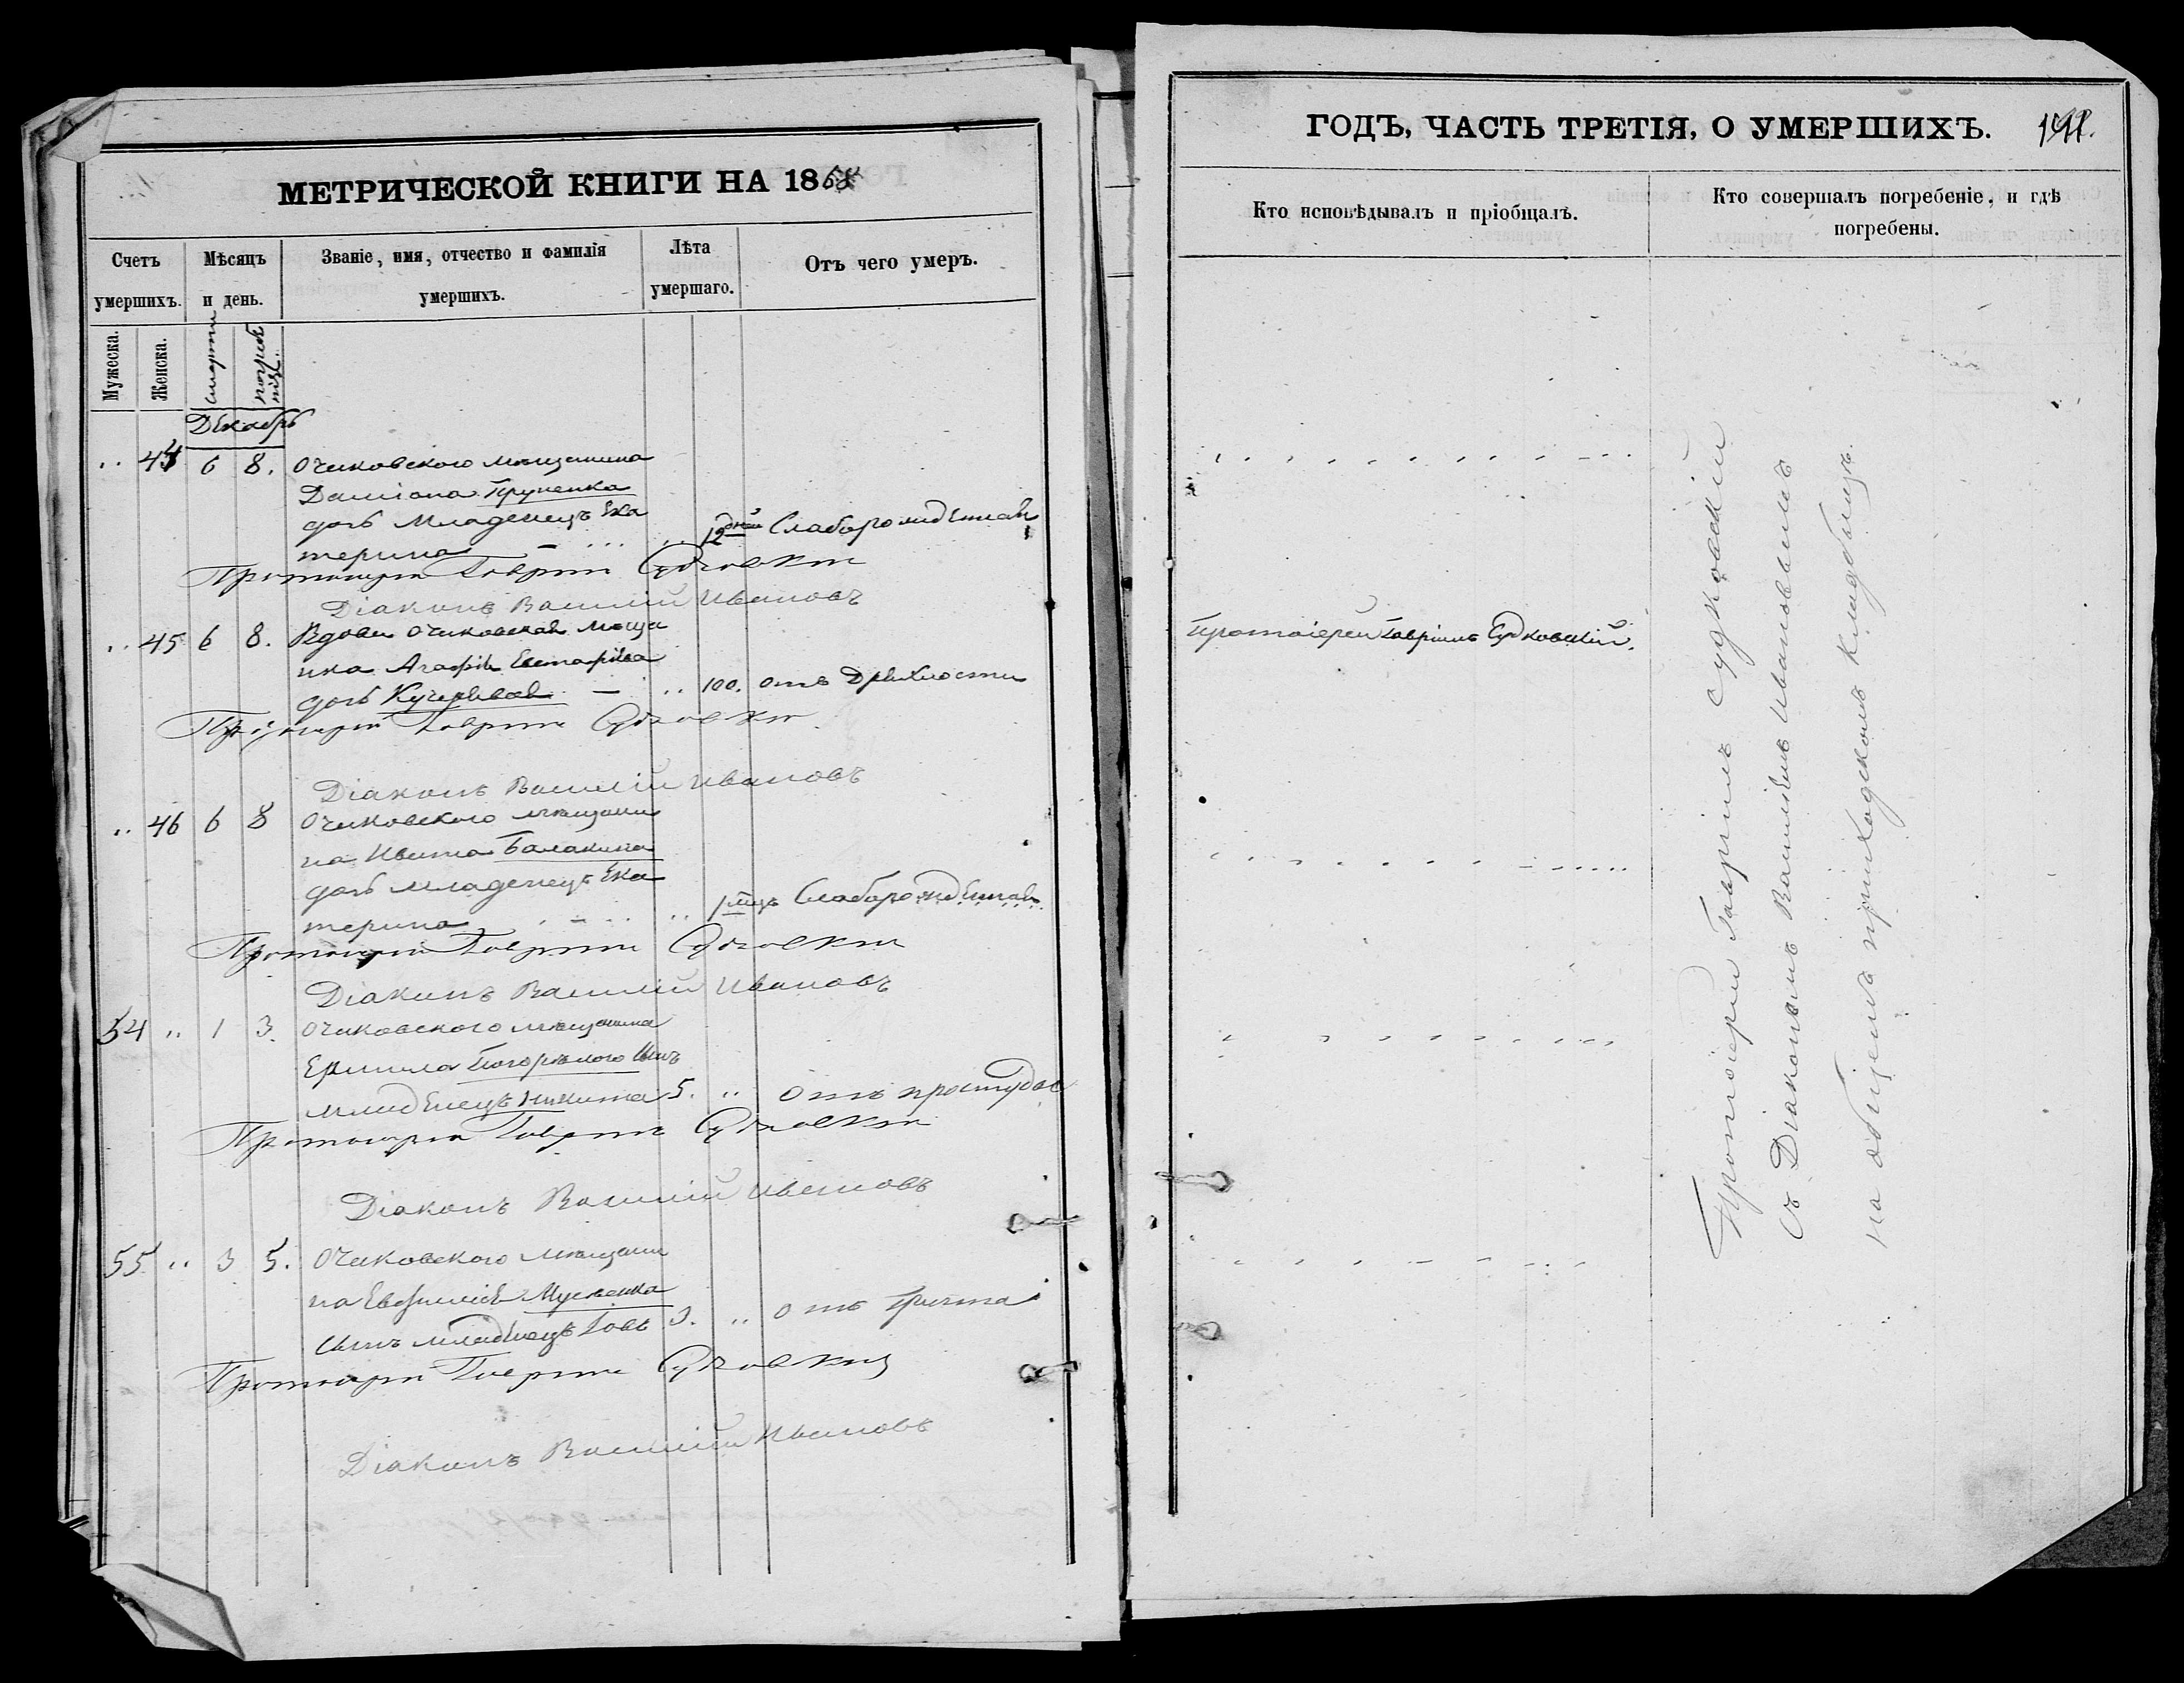 МЕТРИЧЕСКОЙ КНИГИ НА 1868
Счетъ умершихъ.
Мѣсяцъ и день.
Званіе, имя, отчество и фамилія умершихъ.
Лѣта умершаго.
Отъ чего умеръ.
Мужеска.
Женска.
смерти
Декабрь
.. 44 6 8. Очаковскаго мѣщанина
Даміана
дочь младенецъ Ека
терина — ... .. 12 дней Слаборожденная
Протоіерей Гавріилъ Судковскій
Діаконъ Василій Ивановъ
.. 45 6 8. Вдова Очаковская мѣща
нка Агафія Евстафіева
дочь — .. 100. отъ дряхлости
Протоіерей Гавріилъ Судковскій
Діаконъ Василій Ивановъ
.. 46 6 8 Очаковскаго мѣщани
на Ивана Балакина
дочь младенецъ Ека
терина — .. .. 1 мѣць Слаборожденная
Протоіерей Гавріилъ Судковскій
Діаконъ Василій Ивановъ
54 .. 1 3. Очаковскаго мѣщанина
Ермила Погорѣлого сынъ
младенецъ Никита 5. .. отъ простуды
Протоіерей Гавріилъ Судковскій
Діаконъ Василій Ивановъ
55 .. 3 5. Очаковскаго мѣщани
на
сынъ младенецъ 3. .. отъ
Протоіерей Гавріилъ Судковскій
Діаконъ Василій Ивановъ
ГОДЪ, ЧАСТЬ ТРЕТІЯ, О УМЕРШИХЪ.
Кто исповѣдывалъ и пріобщалъ.
Кто совершалъ погребеніе, и гдѣ погребены.
Протоіерей Гавріилъ Судковскій.
Протоіерей Гавріилъ Судковскій
съ Діакономъ Василіемъ Ивановымъ
на общемъ приходскомъ кладбищѣ.